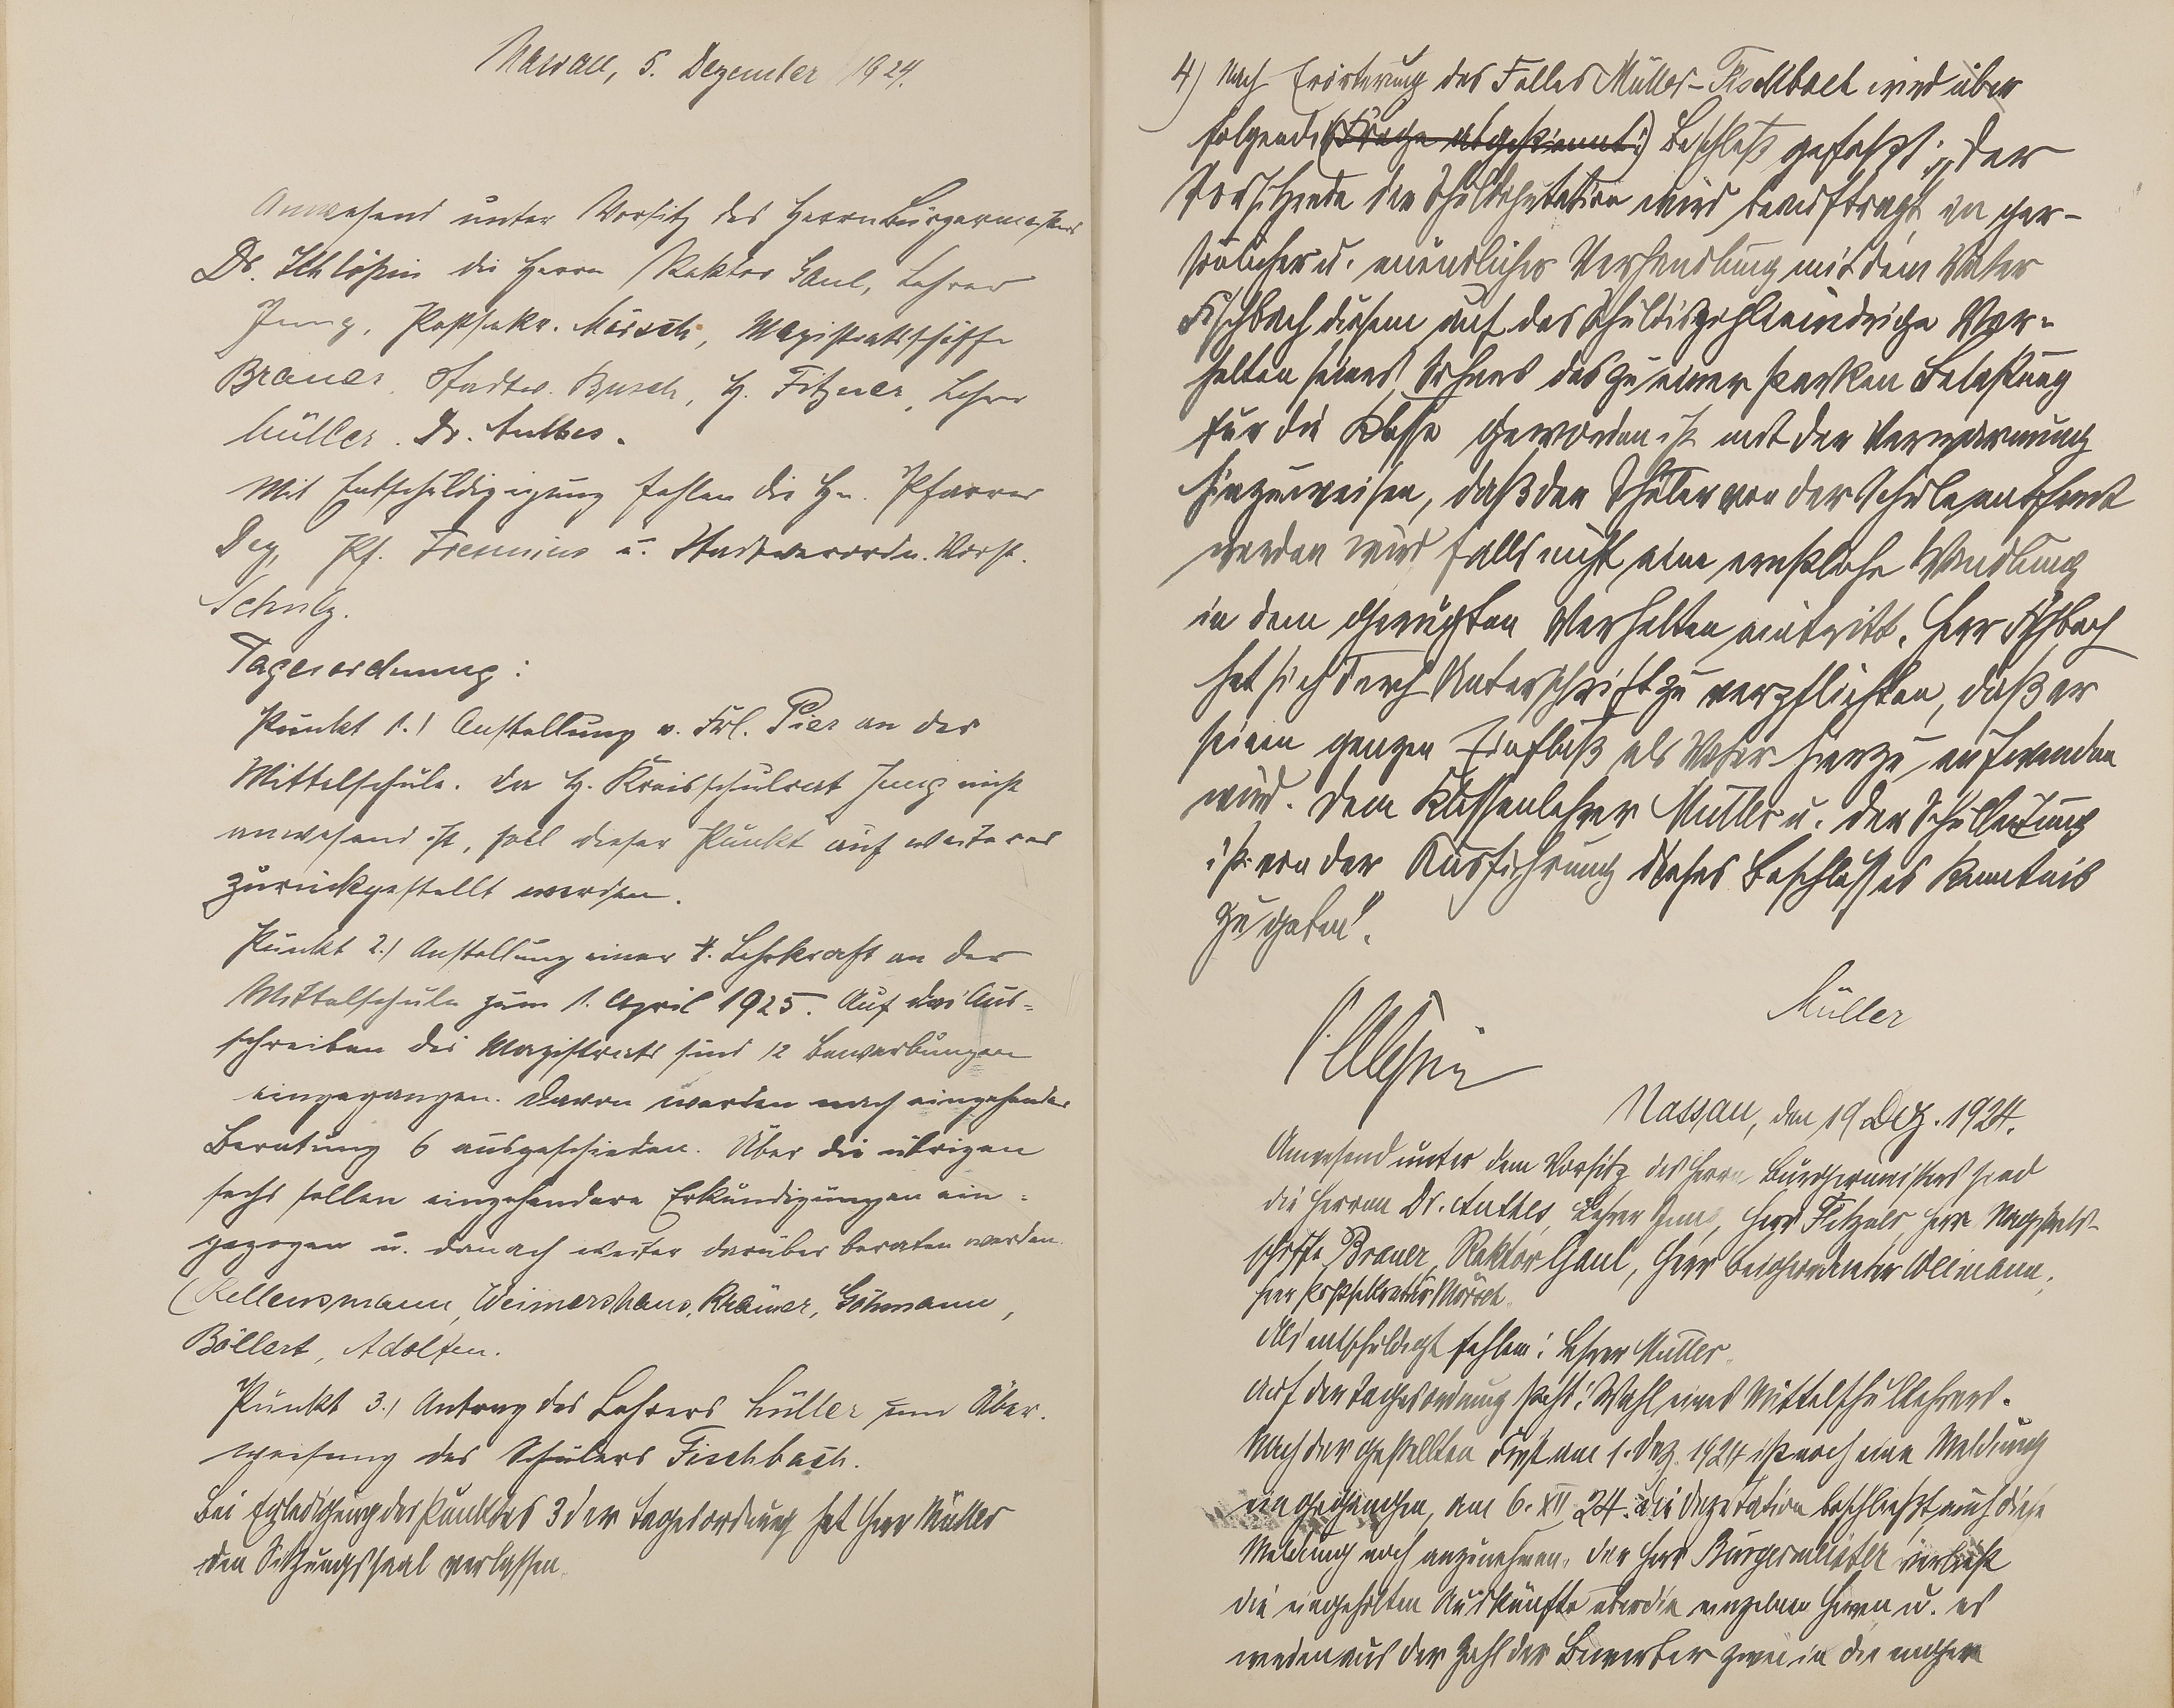 Nassau, 5. Dezember 1924.
Anwesend unter Vorsitz des Herrn Bürgermeisters
Dr. Schlößin die Herrn Rektor Gaul, Lehrer
Jung, Postsekr. Mörsch, Magistratsschöffe
Brauer, Stadtv. Busch, H. Fitzner, Lehrer
Müller. Dr. Anthes.
Mit Entschuldigigung fehlen die Hn. Pfarrer
Dey, Pf. Fresenius u. Stadtverordn. Vorst.
Schulz.
Tagesordnung:
Punkt 1.) Anstellung v. Frl. Pier an der
Mittelschule. Da H. Kreisschulrat Jung nicht
anwesend ist, soll dieser Punkt auf weiteres
zurückgestellt werden.
Punkt 2.) Anstellung einer 4. Lehrkraft an der
Mittelschule zum 1. April 1925. Auf das Aus=
schreiben des Magistrats sind 12 Bewerbungen
eingegangen. Davon werden nach eingehender
Beratung 6 ausgeschieden. Über die übrigen
sechs sollen eingehendere Erkundigungen ein=
gezogen u. danach weiter darüber beraten werden.
(Kellensmann, Weimershaus, Krämer, Göhmann,
Böllert, Adolfen.
Punkt 3.) Antrag des Lehrers Müller um Über.
weisung des Schülers Fischbach.
Bei Erledigung des Punktes 3 der Tagesordnung hat Herr Müller
den Sitzungssaal verlassen.
4) Nach Erörterung des Falles Müller-Fischbach wird über
folgende (Frage abgestimmt:) Beschluß gefaßt: „Der
Vorsitzende der Schuldeputation wird beauftragt, in per-
sönlicher u. mündlicher Verhandlung mit dem Vater
Fischbach diesem auf das schuldisziplinwidrige Ver-
halten seines Sohnes das zu einer starken Belastung
für die Klasse geworden ist mit der Verwarnung
hinzuweisen, daß der Schüler von der Schule entfernt
werden wird falls nicht eine ernstliche Wandlung
in dem gerügten Verhalten eintritt. Herr Fischbach
hat sich durch Unterschrift zu verpflichten, daß er
seinen ganzen Einfluß als Vater hierzu aufwenden
wird. Dem Klassenlehrer Müller u. der Schulleitung
ist von der Ausführung dieses Beschlusses Kenntnis
zu geben".
Müller
Nassau, den 19 Dez. 1924.
Anwesend unter dem Vorsitz des Herrn Bürgermeisters sind
die Herren Dr. Anthes, Lehrer Jung, Herr Fitzner, Herr Magistrats-
schöffe Brauer, Rektor Gaul, Herr Beigeordneter Ullmann,
Herr Postsekretär Mörsch.
Als entschuldigt fehlen: Lehrer Müller.
Auf der Tagesordnung steht: Wahl eines Mittelschullehrers.
Nach der gestellten Frist am 1. Dez. 1924 ist noch eine Meldung
eingegangen, am 6. XII 24. Die Deputation beschließt, auch diese
Meldung noch anzunehmen. Der Herr Bürgermeister verliest
die eingeholten Auskünfte über die einzelnen Herren u. es
werden aus der Zahl der Bewerber zwei in die engere